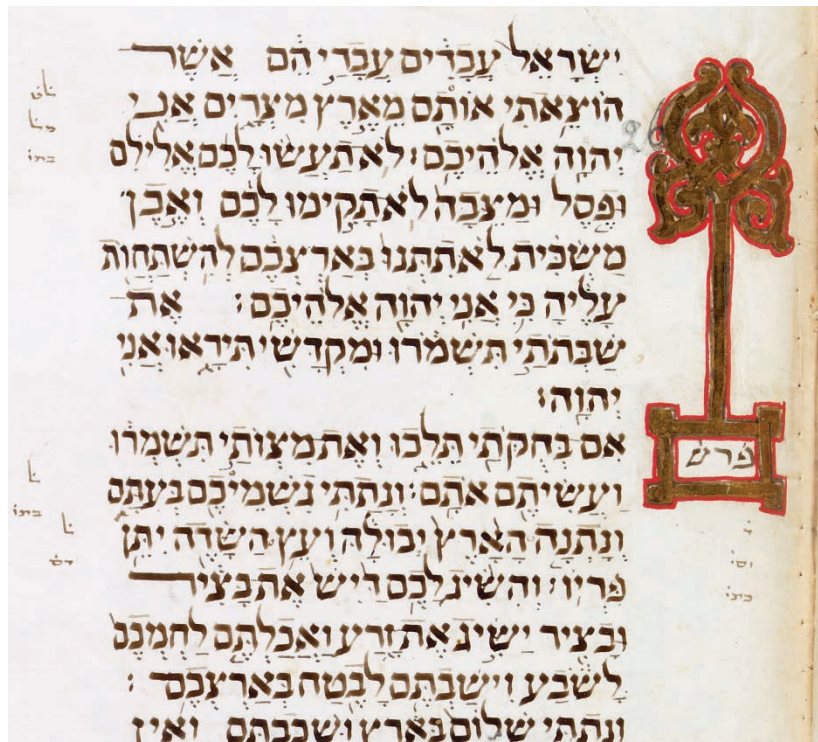 יִשְׂרָאֵל עֲבָדִים עֲבָדַי הֵם אֲשֶׁר
הוֹצֵאתִי אוֹתָם מֵאֶרֶץ מִצְרָיִם אֲנִי
יְהוָה אֱלֹהֵיכֶם׃ לֹא תַעֲשׂוּ לָכֶם אֱלִילִם
26
וּפֶסֶל וּמַצֵּבָה לֹא תָקִימוּ לָכֶם וְאֶבֶן
מַשְׂכִּית לֹא תִתְּנוּ בְּאַרְצְכֶם לְהִשְׁתַּחֲוֹת
עָלֶיהָ כִּי אֲנִי יְהוָה אֱלֹהֵיכֶם׃ אֶת
שַׁבְּתֹתַי תִּשְׁמֹרוּ וּמִקְדָּשִׁי תִּירָאוּ אֲנִי
יְהוָה׃
אִם בְּחֻקֹּתַי תֵּלֵכוּ וְאֶת מִצְוֹתַי תִּשְׁמְרוּ
פרש
וַעֲשִׂיתֶם אֹתָם׃ וְנָתַתִּי גִשְׁמֵיכֶם בְּעִתָּם
וְנָתְנָה הָאָרֶץ יְבוּלָהּ וְעֵץ הַשָּׂדֶה יִתֵּן
פִּרְיוֹ׃ וְהִשִּׂיג לָכֶם דַּיִשׁ אֶת בָּצִיר
וּבָצִיר יַשִּׂיג אֶת זָרַע וַאֲכַלְתֶּם לַחְמְכֶם
לָשֹׂבַע וִישַׁבְתֶּם לָבֶטַח בְּאַרְצְכֶם׃
וְנָתַתִּי שָׁלוֹם בָּאָרֶץ וּשְׁכַבְתֶּם וְאֵין